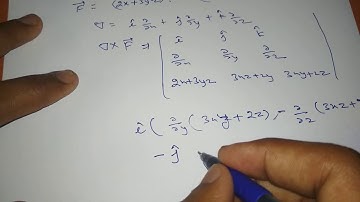 F⃗ = (2x+3yz)
∇ = î ∂/∂x + ĵ ∂/∂y + k̂ ∂/∂z
∇ × F⃗ = | î ĵ k̂
∂/∂x ∂/∂y ∂/∂z
2x+3yz 3xz+2y 3xy+2z |
î ( ∂/∂y (3xy+2z) - ∂/∂z (3xz +
- ĵ